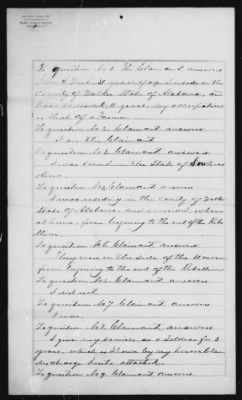 To question No 1 The Claimant answers
I and 51 years of age, I reside in the
County of Walker State of Alabama, and
have resided 6 years, my occupation
is that of a Farmer.
To question No 2. Claimant answers
I am the Claimant
To question No 3. Claimant answers
I was bound in the State of South
lina.
To question No 4 Claimant answers
I was residing in the County of Walk
State of Alabama, and
at home, from beginning to the end of the Rebe
llion.
To question No 5. Claimant answers
They were on the side of the Union
from beginning to the end of the Rebellion
To question No 6. Claimant answers
I did not
To question No 7 Claimant answers
I was.
To question No 8. Claimant answers
I gave my services as a Soldier for 3
years, which is shown by my honorable
discharge hereto attached.
To question No 9. Claimant answers.